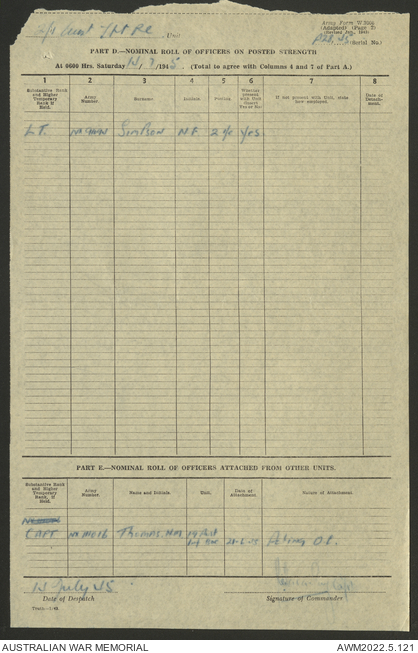 Unit
Army Form W 3008
(Adapted) (Page 2)
(Serial No.)
PART D.—NOMINAL ROLL OF OFFICERS ON POSTED STRENGTH
At 0600 Hrs. Saturday 14/7/1945. (Total to agree with Columns 4 and 7 of Part A.)
1 2 3 4 5 6 7 8
Substantive Rank and Higher Temporary Rank if Held. Army Number Surname Initials Posting Whether present with Unit If not present with Unit, state how employed. Date of
LT. Simpson N F 2 i/c yes
PART E.—NOMINAL ROLL OF OFFICERS ATTACHED FROM OTHER UNITS.
Substantive Rank and Higher Temporary Rank, if Held. Army Number Name and Initials. Unit. Date of Attachment Nature of Attachment
CAPT Thomas Acting O.C.
14 July 45
Date of Despatch Signature of Commander.
AUSTRALIAN WAR MEMORIAL AWM2022.5.121